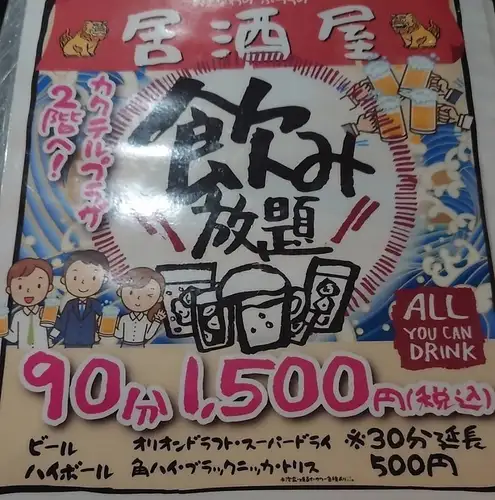 居酒屋
カクテルプラザ
2階へ!
飲み
放題
ALL
YOU CAN
DRINK
90分 1,500円(税込)
ビール オリオンドラフト・スーパードライ ※30分延長
ハイボール 角ハイ・ブラックニッカ・トリス 500円